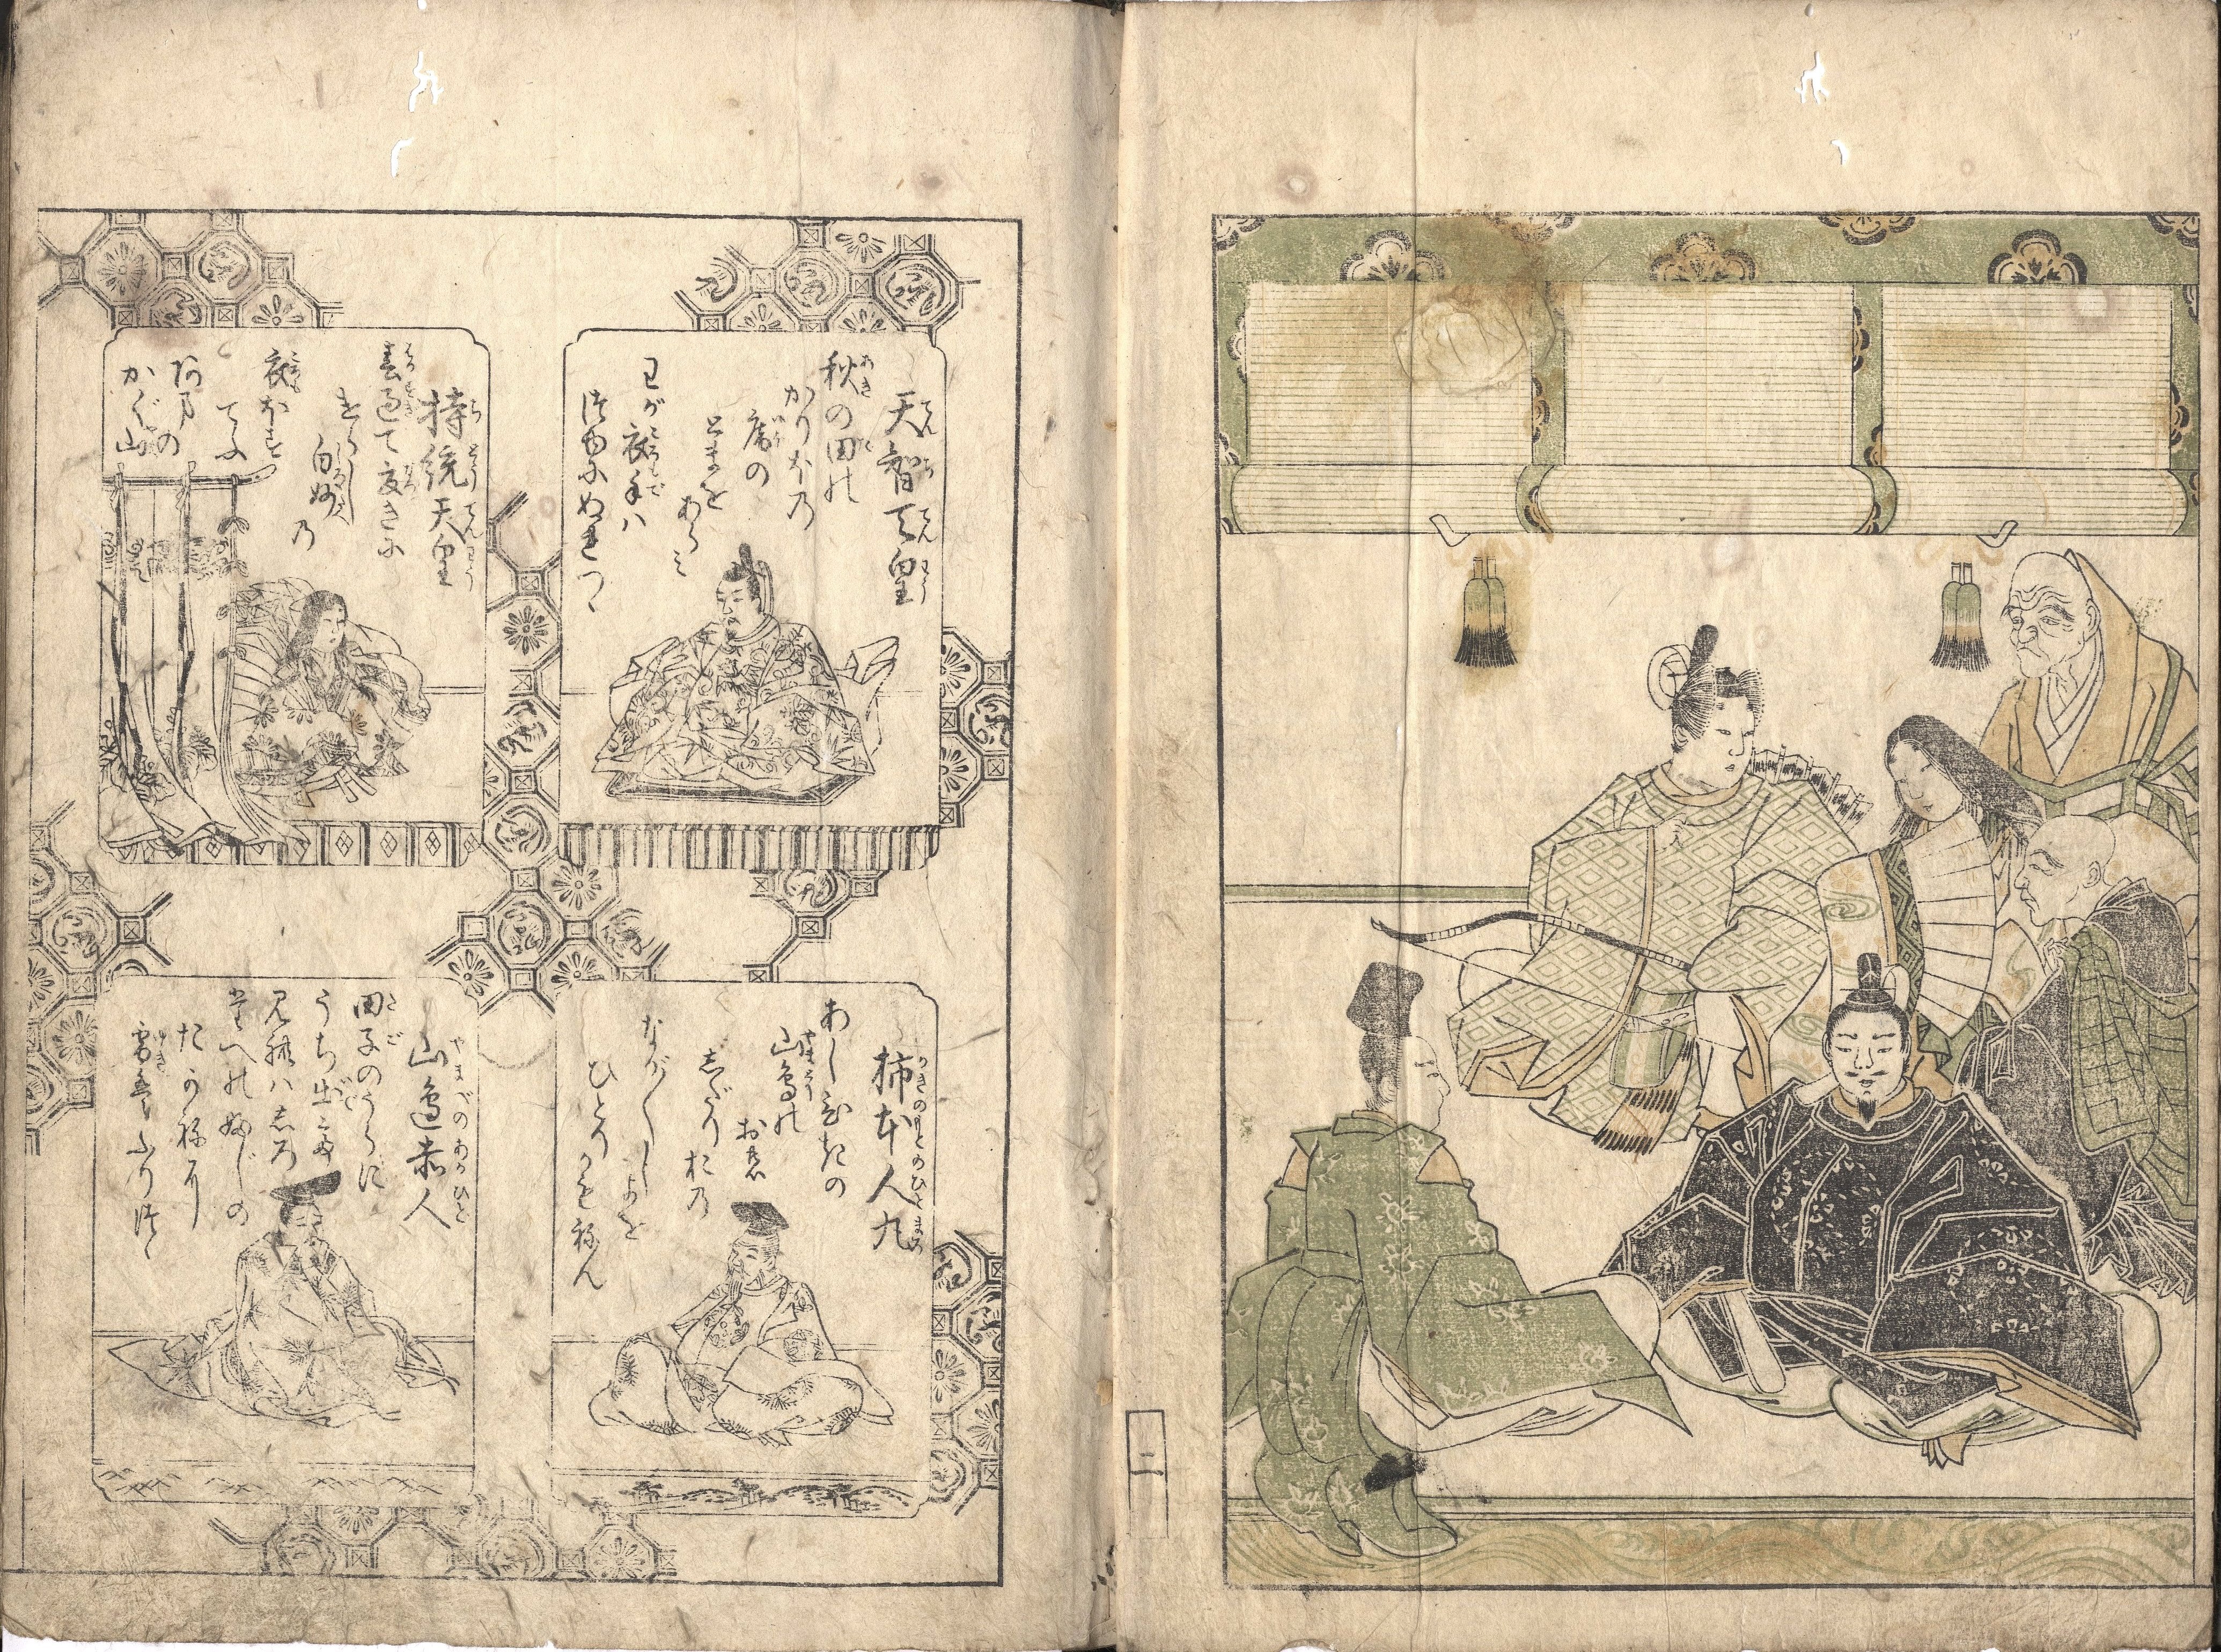 天智天皇
秋の田の
かりほの
庵の
とまを
あらみ
わが衣手ハ
つゆにぬれつゝ
持統天皇
春過て夏きに
けらし
白妙
乃
衣ほす
てふ
あまの
かぐ山
柿本人丸
あしびきの
山鳥の
おの
しだりおの
なが〳〵しよを
ひとりかもねん
山邊赤人
田子のうらに
うち出て
見れハしろ
たへのふじの
たかねに
雪ハふりつゝ